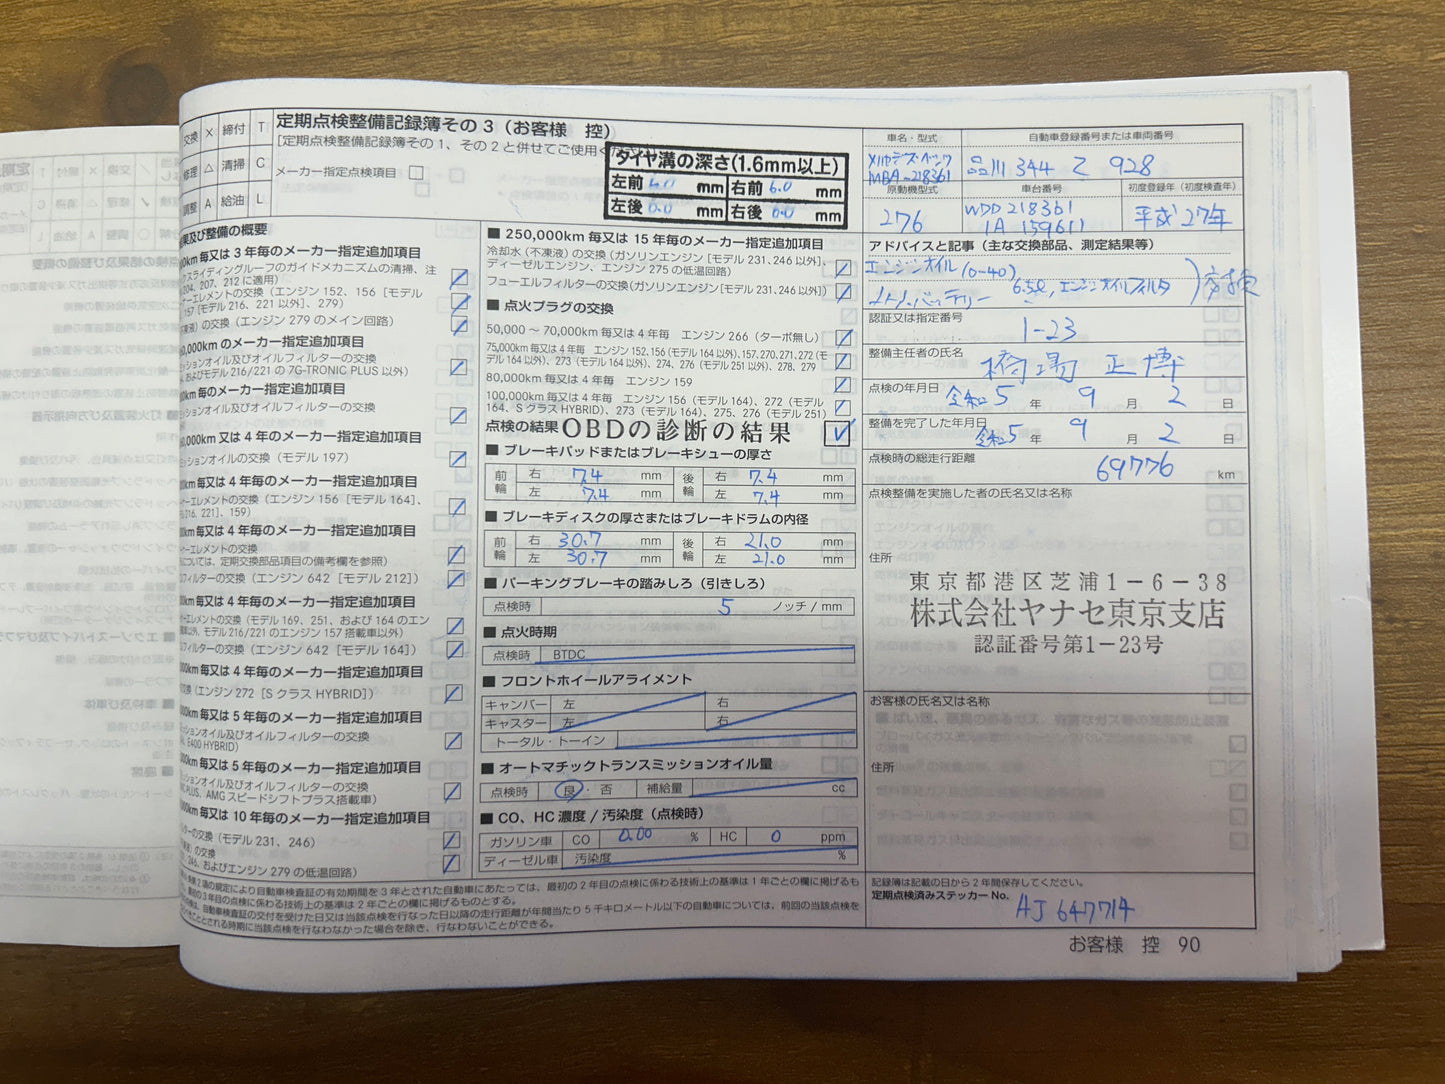 交換 × 締付 T
修理 △ 清掃 C
調整 A 給油 L
定期点検整備記録簿その3（お客様 控）
[定期点検整備記録簿その1、その2と併せてご使用く
メーカー指定点検項目
タイヤ溝の深さ(1.6mm以上)
左前 6.0 mm 右前 6.0 mm
左後 6.0 mm 右後 6.0 mm
果及び整備の概要
0km毎又は3年毎のメーカー指定追加項目
スライディングルーフのガイドメカニズムの清掃、注
204、207、212に適用）
ーエレメントの交換（エンジン152、156［モデル
157［モデル216、221以外］、279）
凍液）の交換（エンジン279のメイン回路）
0,000kmのメーカー指定追加項目
ッションオイル及びオイルフィルターの交換
、およびモデル216/221の7G-TRONIC PLUS以外）
km毎のメーカー指定追加項目
ッションオイル及びオイルフィルターの交換
0,000km又は4年毎のメーカー指定追加項目
ミッションオイルの交換（モデル197）
km毎又は4年毎のメーカー指定追加項目
ーエレメントの交換（エンジン156［モデル164］、
216、221］、159）
km毎又は4年毎のメーカー指定追加項目
ーエレメントの交換
については、定期交換部品項目の備考欄を参照）
フィルターの交換（エンジン642［モデル212］）
00km毎又は4年毎のメーカー指定追加項目
ーエレメントの交換（モデル169、251、および164のエン
以外、モデル216/221のエンジン157搭載車以外）
フィルターの交換（エンジン642［モデル164］）
000km毎又は4年毎のメーカー指定追加項目
交換（エンジン272［SクラスHYBRID］）
000km毎又は5年毎のメーカー指定追加項目
ッションオイル及びオイルフィルターの交換
E400 HYBRID）
000km毎又は5年毎のメーカー指定追加項目
ミッションオイル及びオイルフィルターの交換
PLUS、AMGスピードシフトプラス搭載車）
000km毎又は10年毎のメーカー指定追加項目
ルターの交換（モデル231、246）
凍液）の交換
246、およびエンジン279の低温回路）
■ 250,000km毎又は15年毎のメーカー指定追加項目
冷却水（不凍液）の交換（ガソリンエンジン［モデル231、246以外］、
ディーゼルエンジン、エンジン275の低温回路）
フューエルフィルターの交換（ガソリンエンジン［モデル231、246以外］）
■ 点火プラグの交換
50,000～70,000km毎又は4年毎 エンジン266（ターボ無し）
75,000km毎又は4年毎 エンジン152、156（モデル164以外）、157、270、271、272（モ
デル164以外）、273（モデル164以外）、274、276（モデル251以外）、278、279
80,000km毎又は4年毎 エンジン159
100,000km毎又は4年毎 エンジン156（モデル164）、272（モデル
164、SクラスHYBRID）、273（モデル164）、275、276（モデル251）
点検の結果 OBDの診断の結果
■ ブレーキパッドまたはブレーキシューの厚さ
前輪 右 7.4 mm 後輪 右 7.4 mm
左 7.4 mm 左 7.4 mm
■ ブレーキディスクの厚さまたはブレーキドラムの内径
前輪 右 30.7 mm 後輪 右 21.0 mm
左 30.7 mm 左 21.0 mm
■ パーキングブレーキの踏みしろ（引きしろ）
点検時 5 ノッチ / mm
■ 点火時期
点検時 BTDC
■ フロントホイールアライメント
キャンバー 左 右
キャスター 左 右
トータル・トーイン
■ オートマチックトランスミッションオイル量
点検時 良・否 補給量 cc
■ CO、HC濃度 / 汚染度（点検時）
ガソリン車 CO 0.00 % HC 0 ppm
ディーゼル車 汚染度 %
車名・型式 自動車登録番号または車両番号
メルセデス・ベンツ
MBA-218361
品川 344 て 928
原動機型式 車台番号 初度登録年（初度検査年）
276
WDD218361
1A 159611
平成27年
アドバイスと記事（主な交換部品、測定結果等）
エンジンオイル(0-40) 6.5ℓ, エンジンオイルフィルタ
メインバッテリー
交換
認証又は指定番号
1-23
整備主任者の氏名
橋場 正博
点検の年月日 令和5年 9月 2日
整備を完了した年月日 令和5年 9月 2日
点検時の総走行距離
69776 km
点検整備を実施した者の氏名又は名称
住所
東京都港区芝浦1－6－38
株式会社ヤナセ東京支店
認証番号第1－23号
お客様の氏名又は名称
住所
記録簿は記載の日から2年間保存してください。
定期点検済みステッカーNo.
AJ 647714
条第2項の規定により自動車検査証の有効期間を3年とされた自動車にあたっては、最初の2年目の点検に係わる技術上の基準は1年ごとの欄に掲げるも
最初の3年目の点検に係わる技術上の基準は2年ごとの欄に掲げるものとする。
点検は、自動車検査証の交付を受けた日又は当該点検を行なった日以降の走行距離が年間当たり5千キロメートル以下の自動車については、前回の当該点検を
べきこととされる時期に当該点検を行なわなかった場合を除き、行なわないことができる。
お客様 控 90